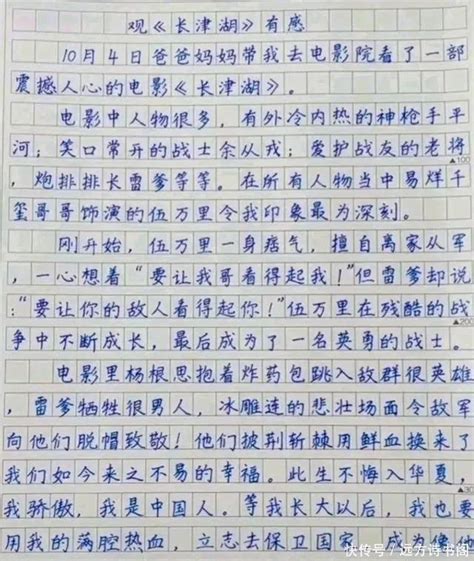 观《长津湖》有感
10月4日爸爸妈妈带我去电影院看了一部
震撼人心的电影《长津湖》。
电影中人物很多，有外冷内热的神枪手平
河；笑口常开的战士余从戎；爱护战友的老将
，炮排排长雷爹等等。在所有人物当中易烊千
▲100
玺哥哥饰演的伍万里令我印象最为深刻。
刚开始，伍万里一身痞气，擅自离家从军
，一心想着“要让我哥看得起我！”但雷爹却说
：“要让你的敌人看得起你！”伍万里在残酷的战
▲200
争中不断成长，最后成为了一名英勇的战士。
电影里杨根思抱着炸药包跳入敌群很英雄
，雷爹牺牲很男人，冰雕连的悲壮场面令敌军
向他们脱帽致敬！他们披荆斩棘用鲜血换来了
我们如今来之不易的幸福。此生不悔入华夏，
我骄傲，我是中国人。等我长大以后，我也要
用我的满腔热血，立志去保卫国家，成为像他
快传号／远方诗书阁